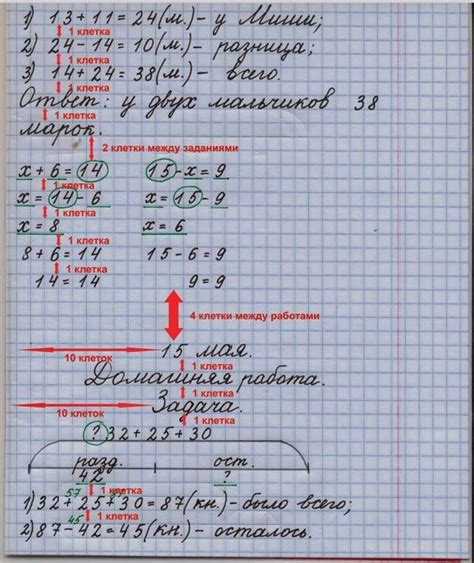 1) 13+11=24(м.)- у Миши;
1 клетка
2) 24-14=10(м.)- разница;
1 клетка
3) 14+24=38(м.)- всего.
1 клетка
Ответ: у двух мальчиков 38
1 клетка
марок.
2 клетки между заданиями
х+6=14 15-х=9
1 клетка
х=14-6 х=15-9
1 клетка
х=8 х=6
1 клетка
8+6=14 15-6=9
1 клетка
14=14 9=9
4 клетки между работами
10 клеток 15 мая.
1 клетка
Домашняя работа.
1 клетка
10 клеток Задача.
1 клетка
? 32+25+30
разд. ост.
42 ?
57 1 клетка
1) 32+25+30=87(кн.)- было всего;
45 1 клетка
2) 87-42=45(кн.)- осталось.